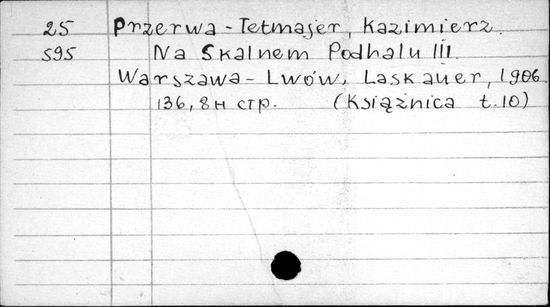 25 Przerwa-Tetmajer, Kazimierz.
595 Na Skalnem Podhalu III.
Warszawa-Lwów, Laskauer, 1906.
136, 8н стр. (Książnica t.10)